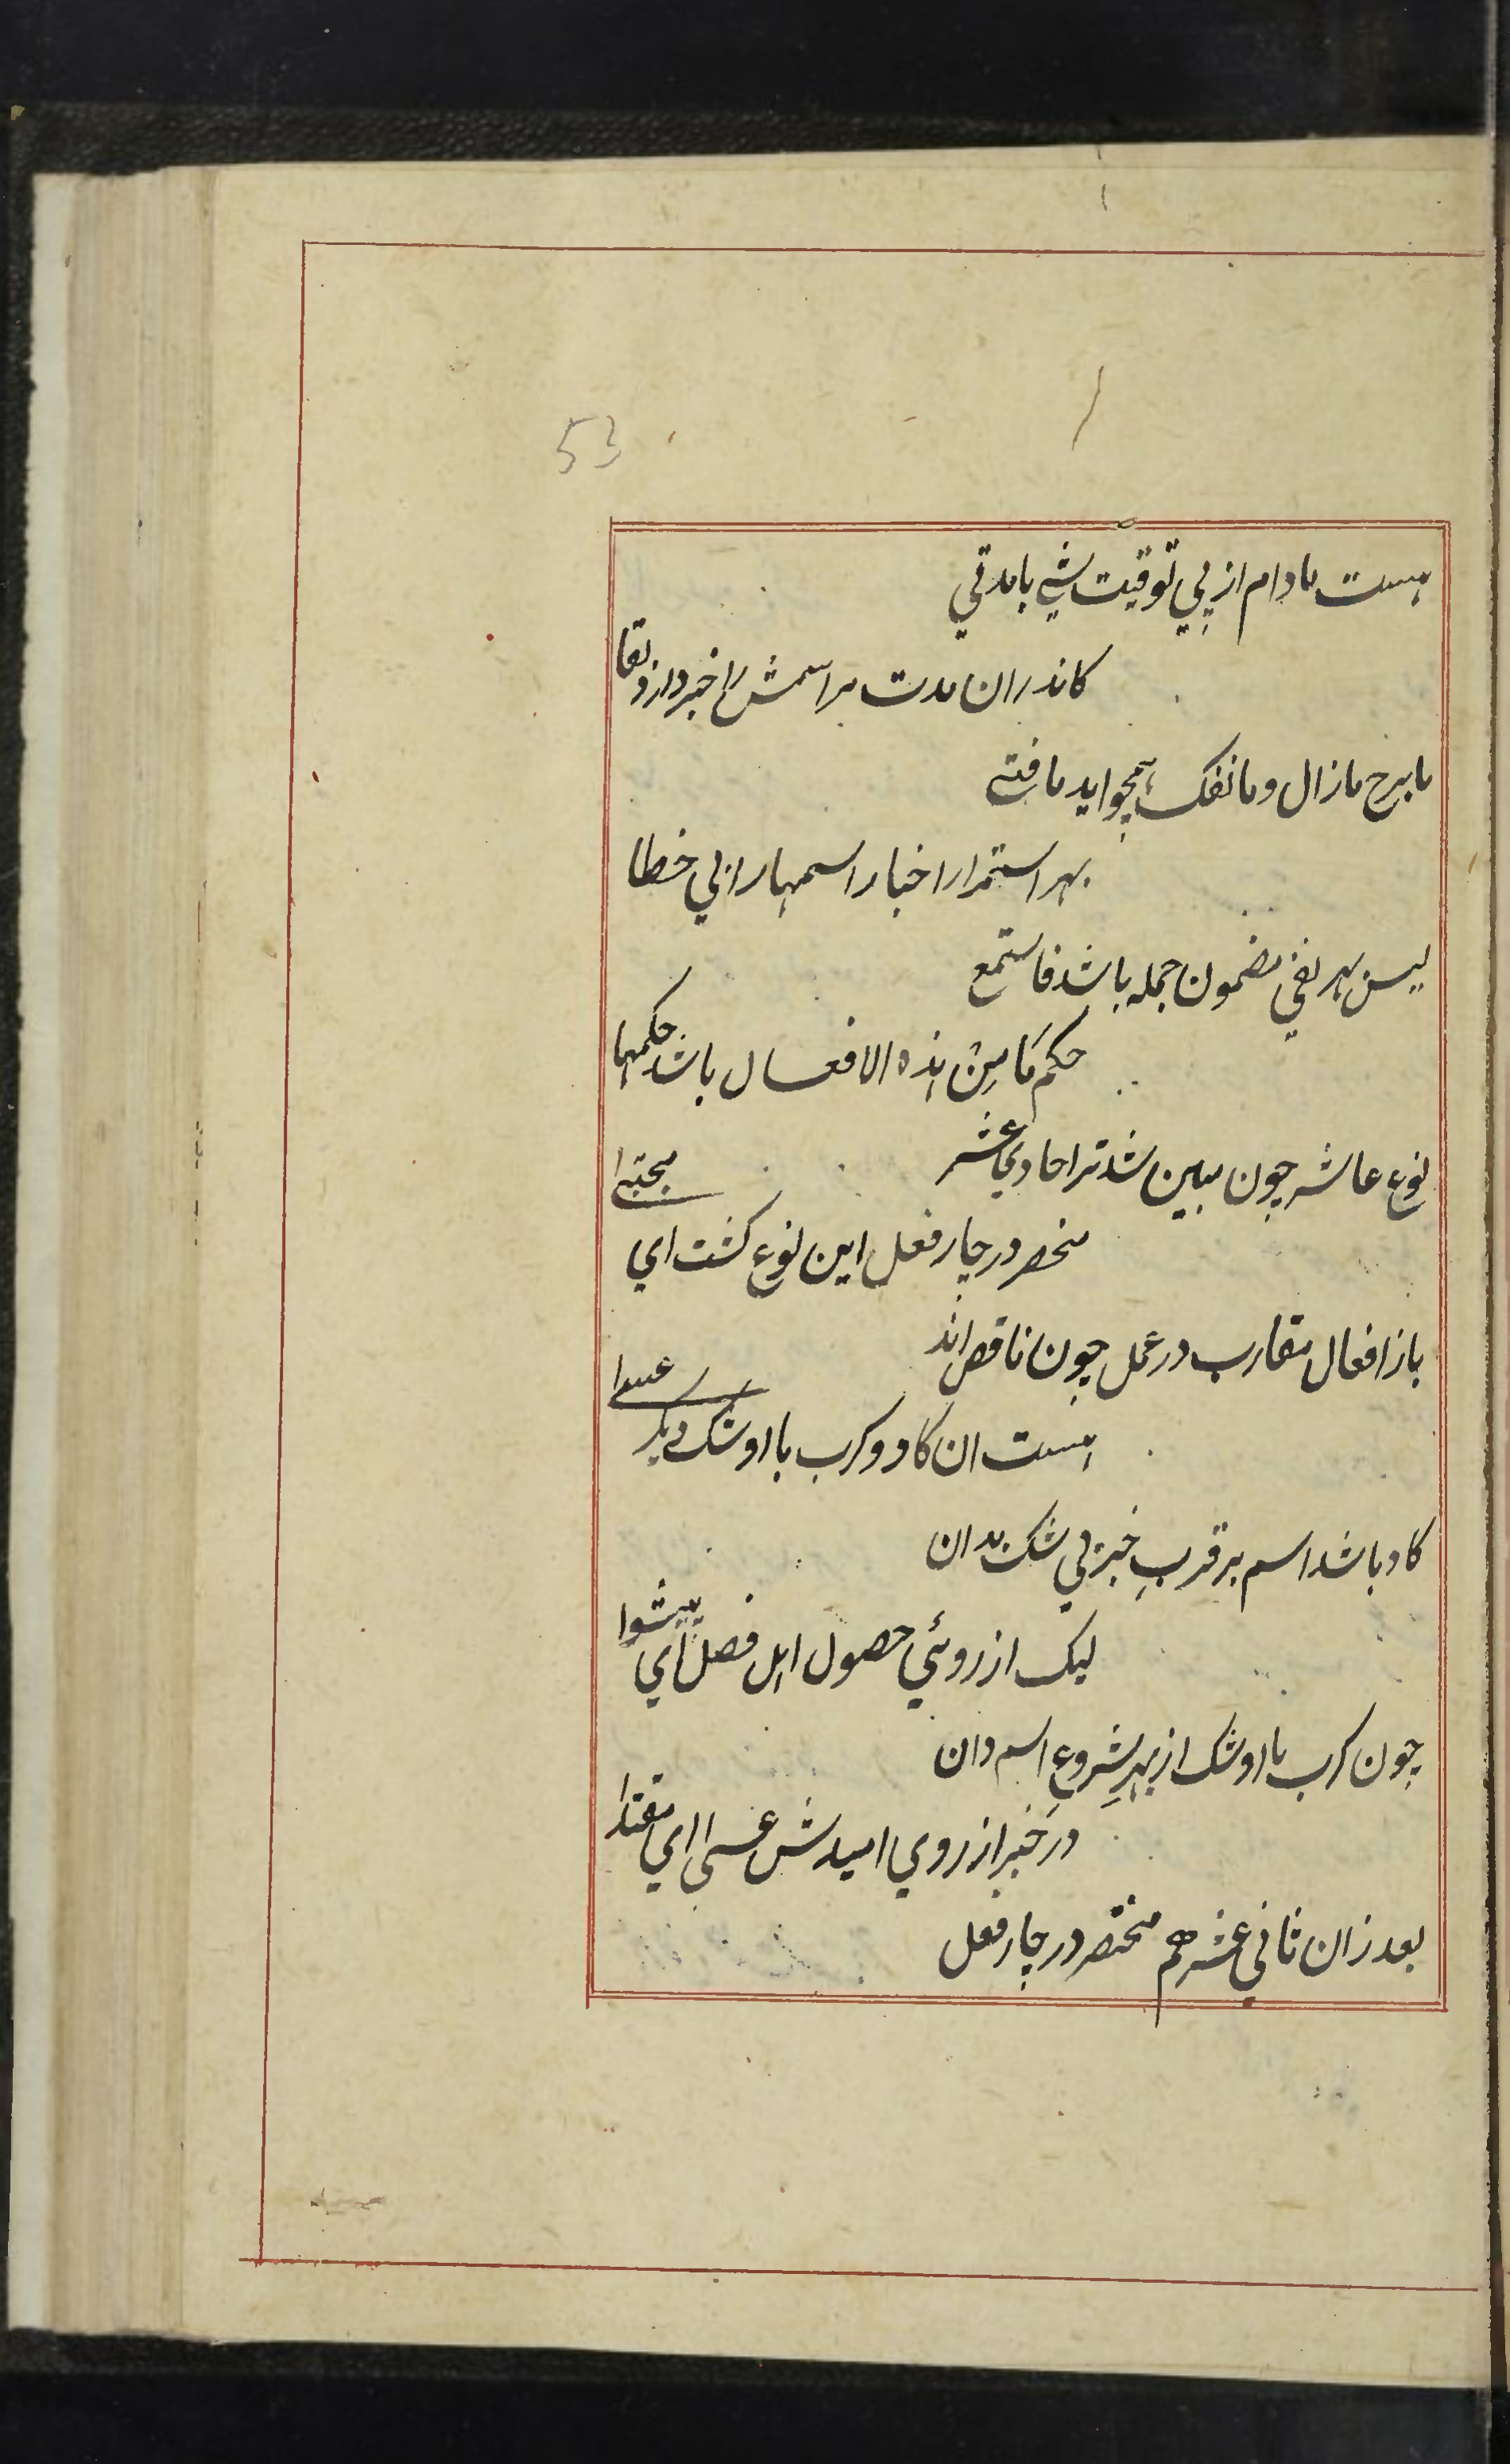 53
هست مادام از پي توقيت شي با مدتي
كاندران مدت مر اسمش را خبر دارد بقا
ما برح مازال و ما نفك همچو ايد ما فتي
بهر استمرار اخبار اسمها را بي خطا
ليس بهر نفي مضمون جمله باشد فاستمع
حكم مَا مِنْ هذه الافعال باشد حكمها
نوع عاشر چون مبين شد ترا حادي عشر
منحصر در چار فعل اين نوع كشت اي مجتبى
باز افعال مقارب در عمل چون ناقص اند
هست ان كاد و كرب با اوشك ديكر عسى
كاد باشد اسم بر قربِ خبر بي شك بدان
ليك از روئي حصول اهل فصل اي پيشوا
چون كرب با اوشك از بهرِ شروعِ اسم دان
در خبر از روي اميدش عسى اي مقتدا
بعد زان ثاني عشر هم منحصر در چار فعل